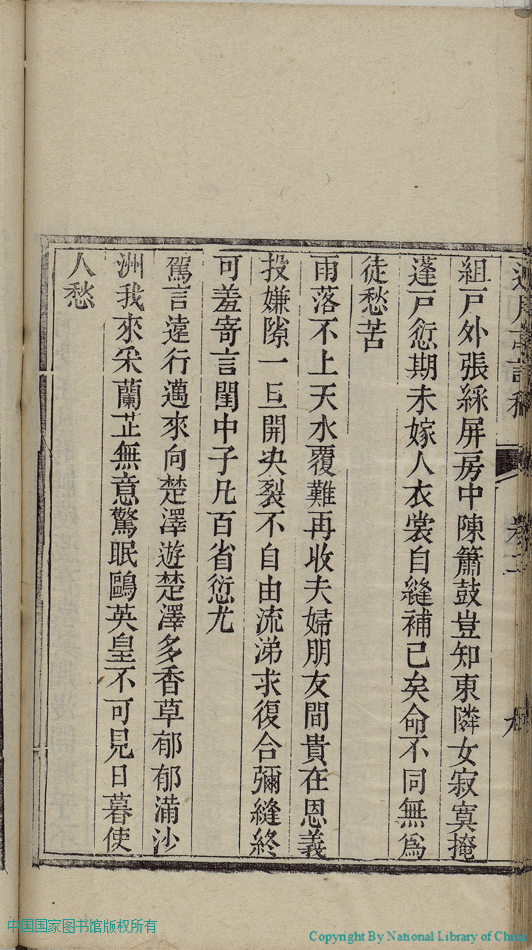 組戸外張綵屏房中陳簫鼓豈知東隣女寂寞掩
蓬戸愆期未嫁人衣裳自縫補已矣命不同無爲
徒愁苦
雨落不上天水覆難再收夫婦朋友間貴在恩義
投嫌隙一旦開央裂不自由流涕求復合彌縫終
可羞寄言閨中子凡百省愆尤
駕言遠行邁來向楚澤遊楚澤多香草郁郁滿沙
洲我來采蘭芷無意驚眠鷗英皇不可見日暮使
人愁
中国国家图书馆版权所有
Copyright By National Library of China